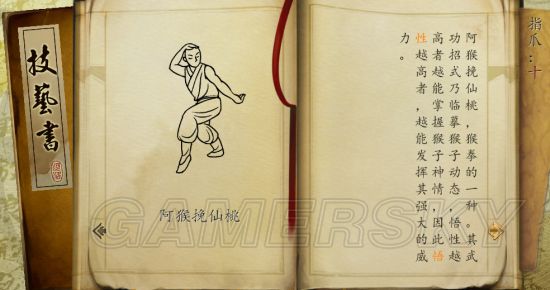 技藝書
阿猴挽仙桃
阿猴挽仙桃，猴拳的一种。其武
功招式乃临摹猴子动态，悟性越
高者越能掌握猴子神情，因此悟
性越高者，越能发挥其强大的威
力。
指爪：十
GAMERSKY